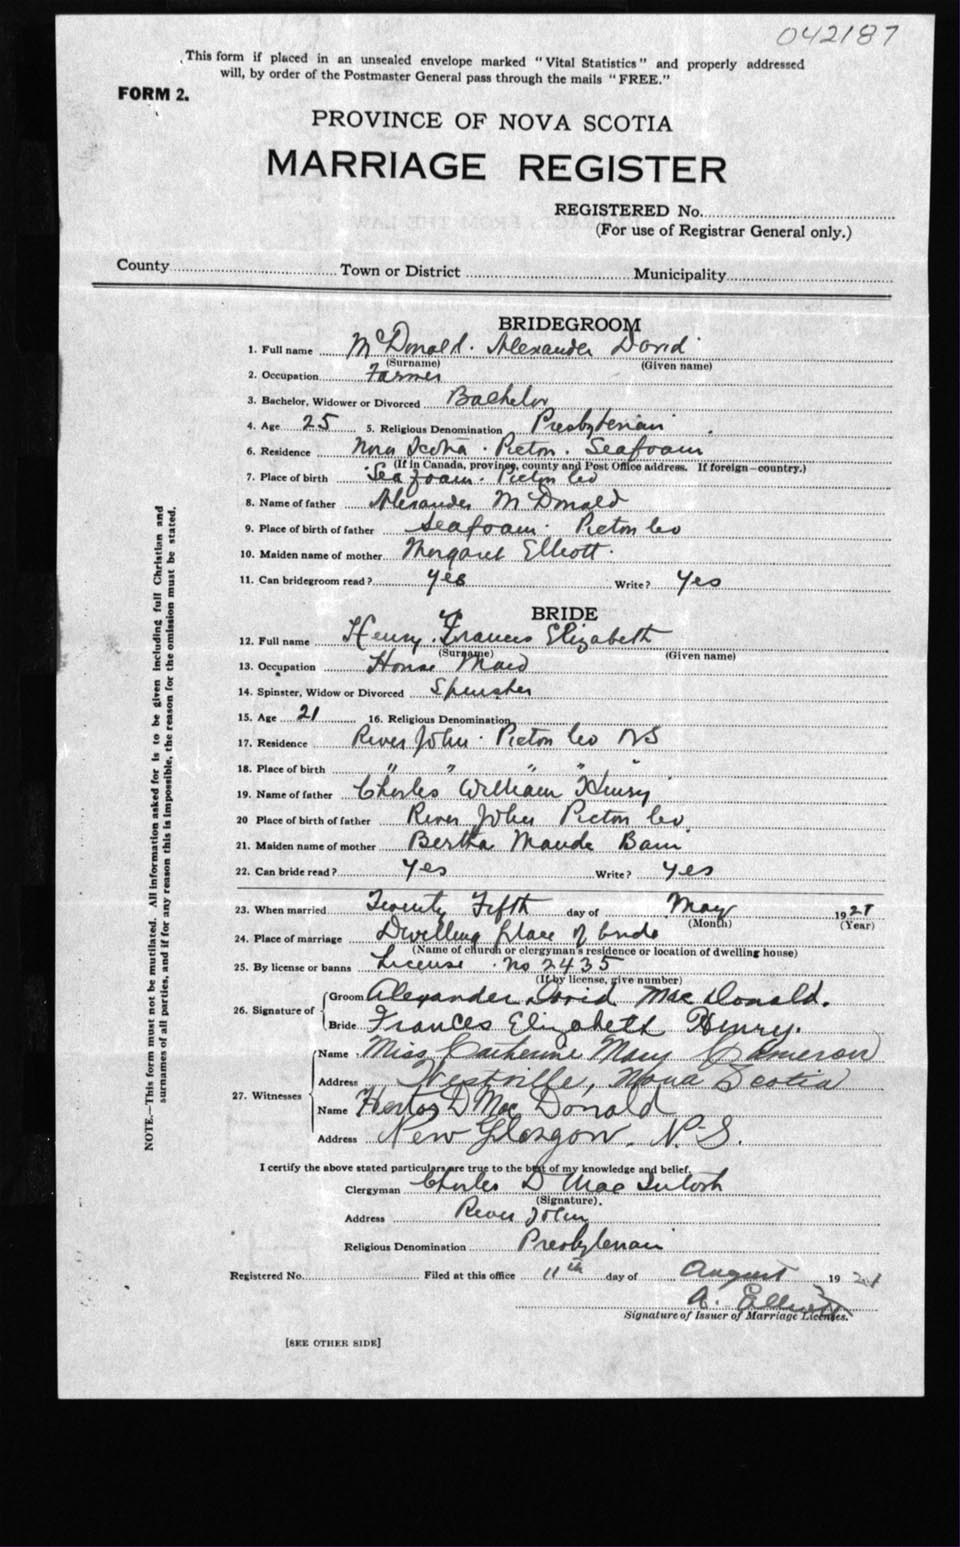 042187
This form if placed in an unsealed envelope marked "Vital Statistics" and properly addressed
will, by order of the Postmaster General pass through the mails "FREE."
FORM 2.
PROVINCE OF NOVA SCOTIA
MARRIAGE REGISTER
REGISTERED No.
(For use of Registrar General only.)
County Town or District Municipality
NOTE.—This form must not be mutilated. All information asked for is to be given including full Christian and
surnames of all parties, and if for any reason this is impossible, the reason for the omission must be stated.
BRIDEGROOM
1. Full name McDonald. Alexander David
(Surname) (Given name)
2. Occupation Farmer
3. Bachelor, Widower or Divorced Bachelor
4. Age 25 5. Religious Denomination Presbyterian
6. Residence Nova Scotia. Pictou. Seafoam
(If in Canada, province, county and Post Office address. If foreign—country.)
7. Place of birth Seafoam. Pictou Co
8. Name of father Alexander McDonald
9. Place of birth of father Seafoam. Pictou Co
10. Maiden name of mother Margaret Elliott.
11. Can bridegroom read? yes Write? yes
BRIDE
12. Full name Henry. Frances Elizabeth
(Surname) (Given name)
13. Occupation House Maid
14. Spinster, Widow or Divorced Spinster
15. Age 21 16. Religious Denomination
17. Residence River John. Pictou Co NS
18. Place of birth " " " " "
19. Name of father Charles William Henry
20 Place of birth of father River John Pictou Co.
21. Maiden name of mother Bertha Maude
22. Can bride read? yes Write? yes
23. When married Twenty Fifth day of May 1921
(Month) (Year)
24. Place of marriage Dwelling place of bride
(Name of church or clergyman's residence or location of dwelling house)
25. By license or banns License. No 2435
(If by license, give number)
26. Signature of Groom Alexander David MacDonald.
Bride Frances Elizabeth Henry.
27. Witnesses Name Miss Catherine Mary Cameron
Address Westville, Nova Scotia
Name D MacDonald
Address New Glasgow. N.S.
I certify the above stated particulars are true to the best of my knowledge and belief.
Clergyman Charles D MacIntosh
(Signature).
Address River John
Religious Denomination Presbyterian
Registered No. Filed at this office 11th day of August 1921
A. Elliott
Signature of Issuer of Marriage Licenses.
[SEE OTHER SIDE]